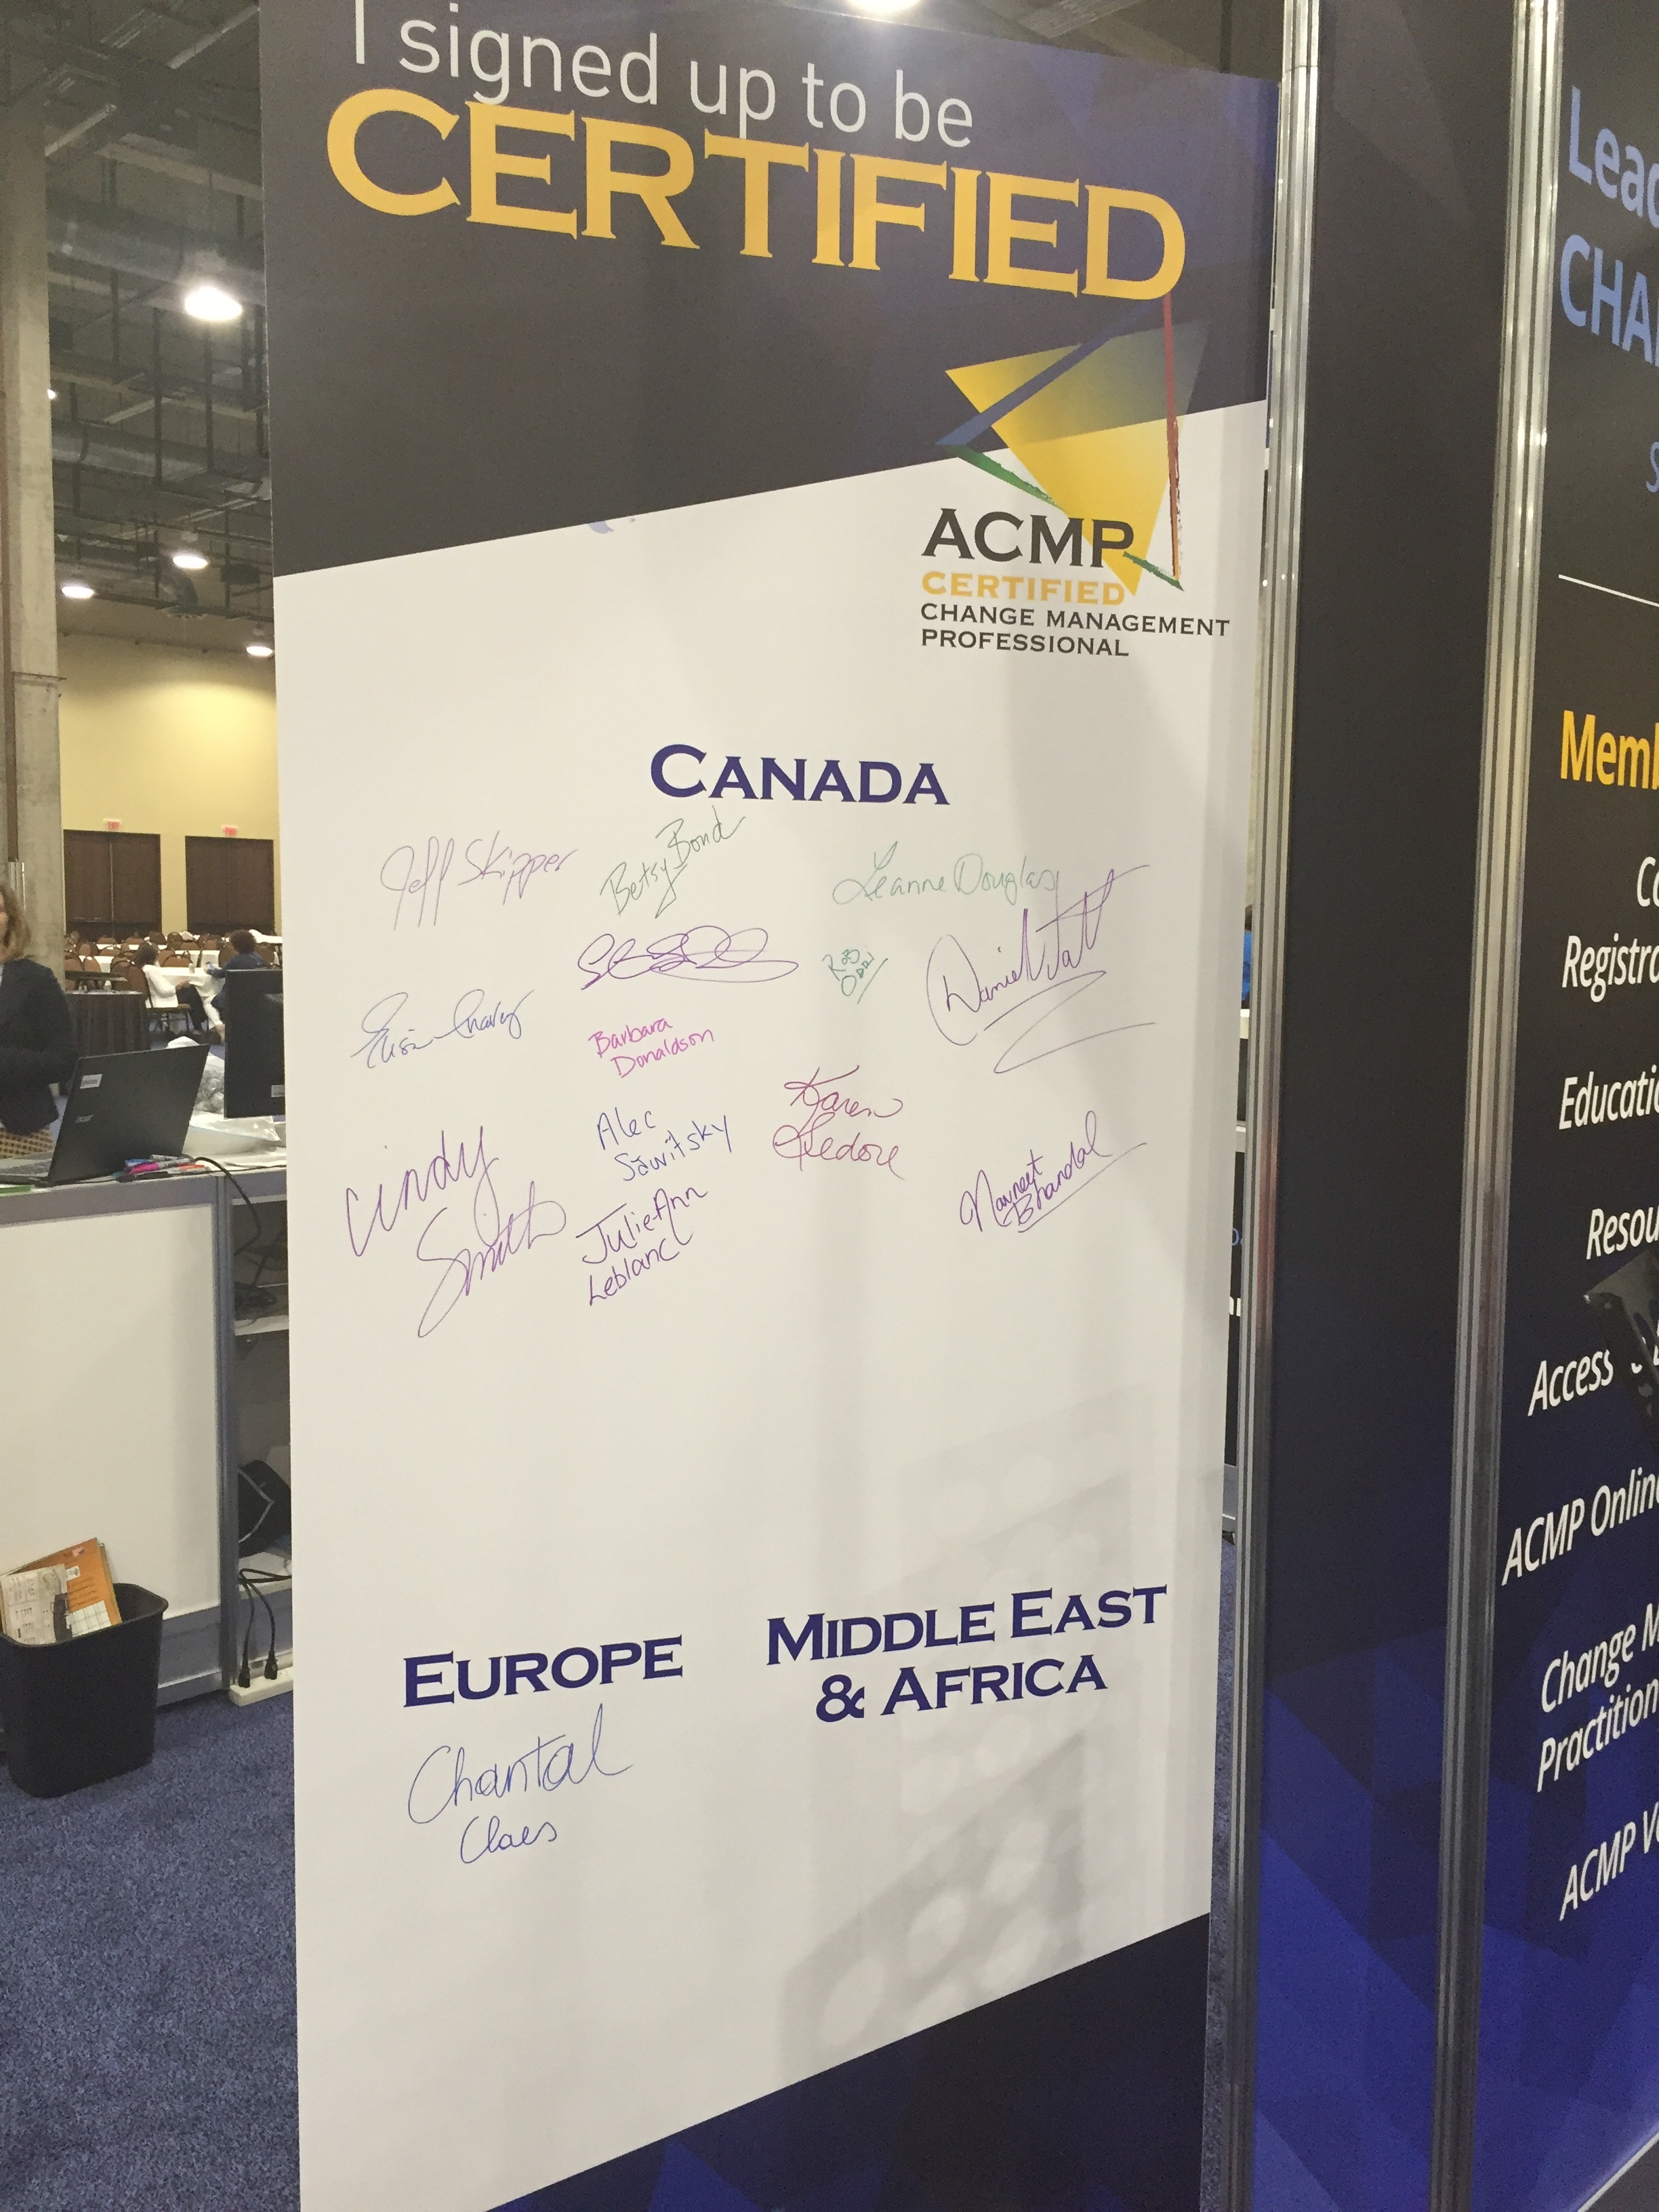 I signed up to be
CERTIFIED
ACMP
CERTIFIED
CHANGE MANAGEMENT
PROFESSIONAL
CANADA
Jeff Skipper
Betsy Bond
Leanne Douglas
Daniel
Barbara
Donaldson
Cindy
Smith
Alec
Sawitsky
Julie-Ann
Leblanc
Karen
Ledore
Navneet
Bhandal
EUROPE
Chantal
Claes
MIDDLE EAST
& AFRICA
Lead
CHA
Memb
Co
Registra
Educatio
Resou
Access
ACMP Online
Change M
Practition
ACMP V
acer